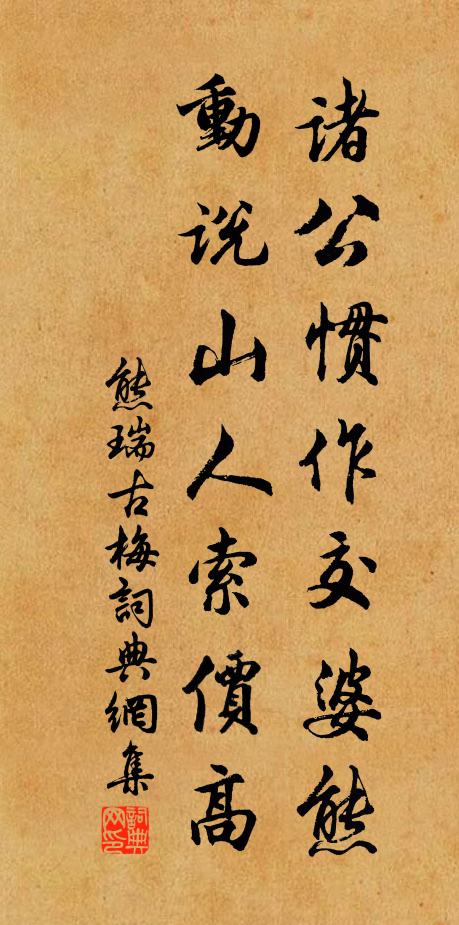 諸公慣作交婆熊
動説山人索價高
熊瑞古梅詞典網集
詞典网印